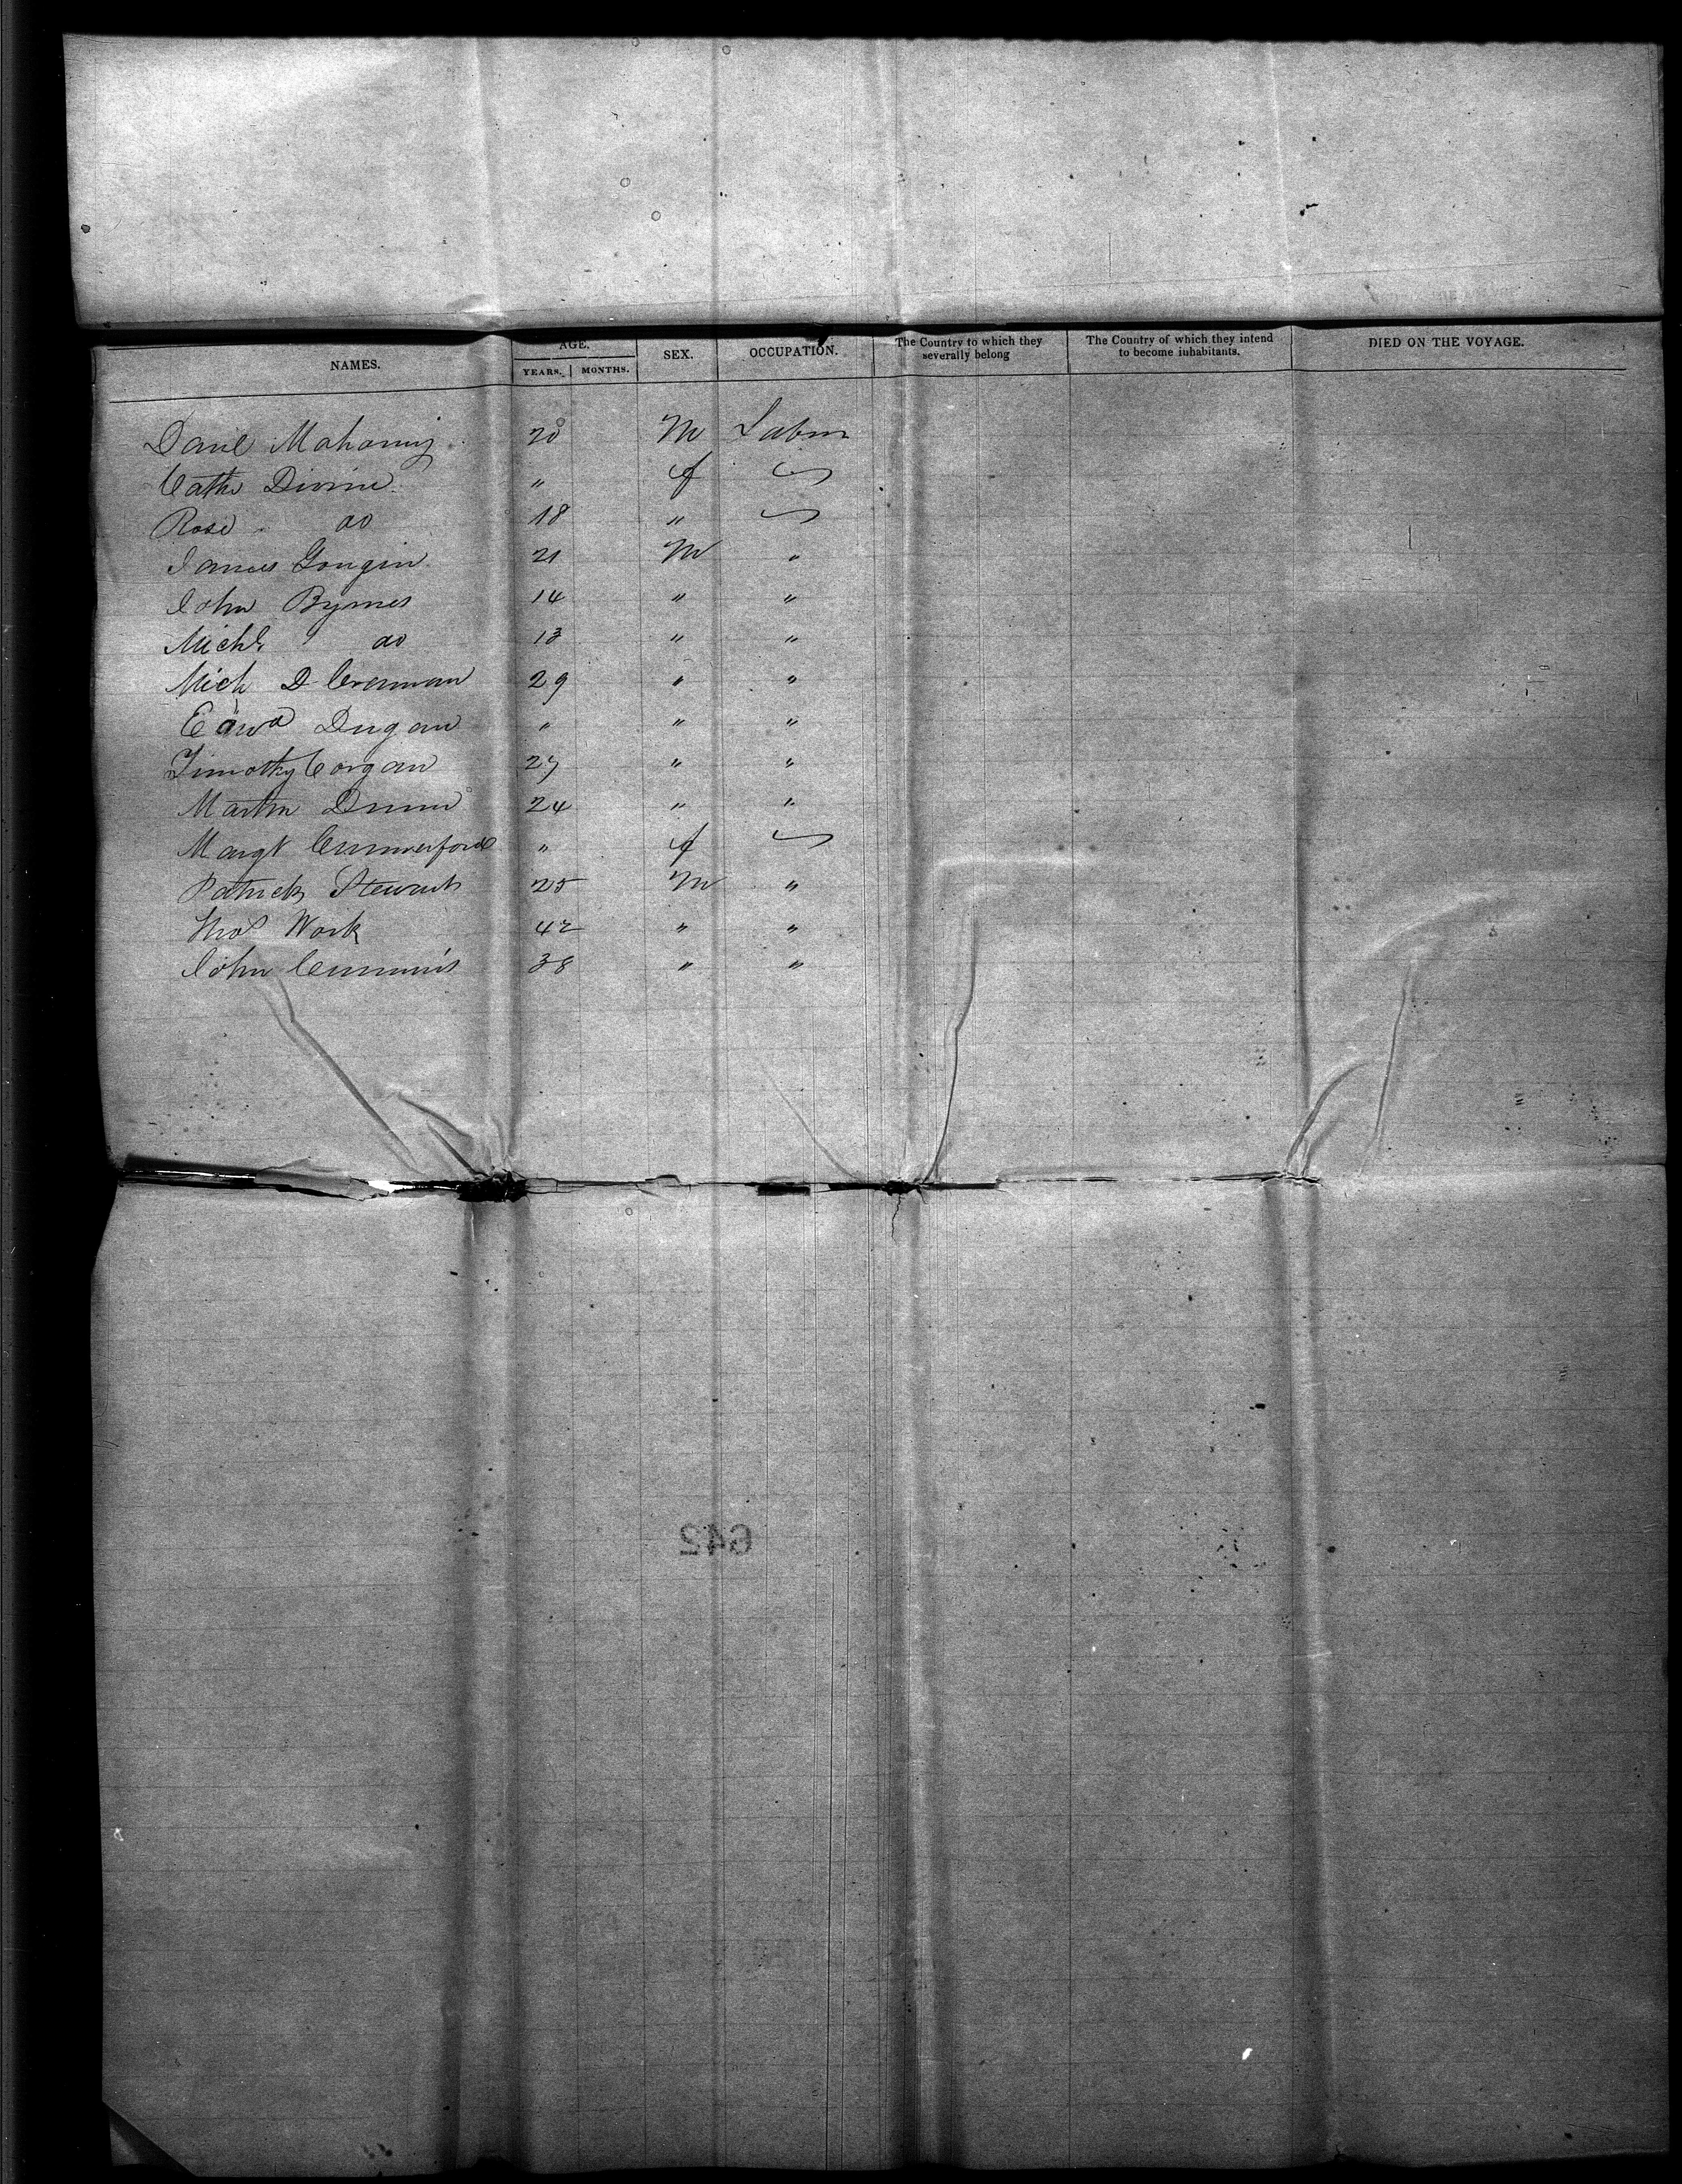 NAMES. AGE. YEARS. MONTHS. SEX. OCCUPATION. The Country to which they severally belong The Country of which they intend to become inhabitants. DIED ON THE VOYAGE.
Danl Mahoney 20 M Labor
Cath Divine " f
Rose do 18 "
James Gongin 21 M "
John Byrnes 14 " "
Michl do 13 " "
Mich D Crennan 29 " "
Edwd Dugan " " "
Timothy Corgan 27 " "
Martin Dunn 24 " "
Margt Cummerford " f
Patrick Stewart 25 M "
Thos Work 42 " "
John Cummins 38 " "
642